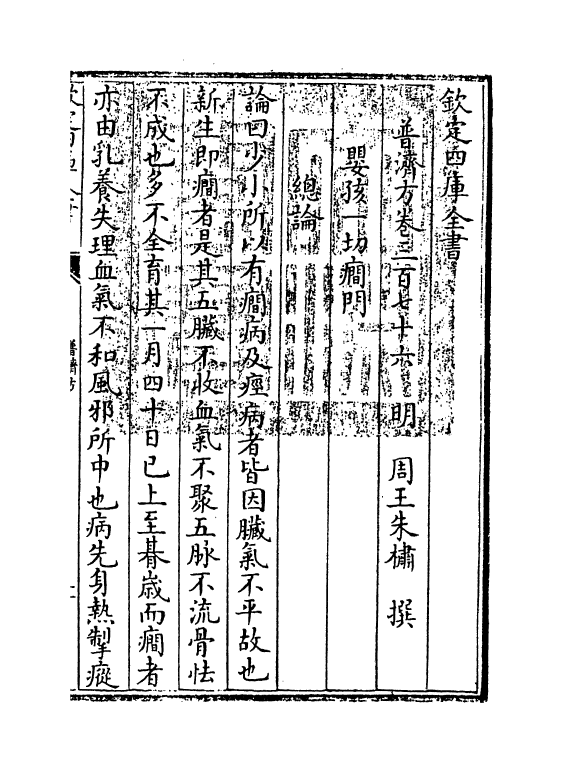 欽定四庫全書
普濟方卷三百七十六 明 周王朱橚 撰
嬰孩一切癇門
總論
論曰少小所以有癇病及痙病者皆因臟氣不平故也
新生即癇者是其五臟不收血氣不聚五脉不流骨怯
不成也多不全育其一月四十日已上至朞歲而癇者
亦由乳養失理血氣不和風邪所中也病先身熱掣瘲